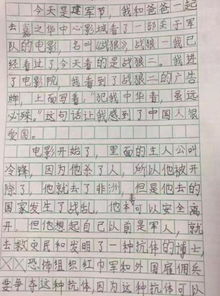 今天是建军节，我和爸爸一起
去影之华中心影城看了一部关于军
队的电影，名叫《战狼》。战狼一我已
经看过了今天看的是战狼二。我进
了电影院，我看到了战狼二的广告
牌，上面写着："犯我中华者，虽远
必殊。"这句话让我感到了中国人很
爱国。
电影开始了，里面的主人公叫
冷锋，因为他杀了人，所以他被开
除了，他就去了非洲，但是他去的
国家发生了战乱，他本可以安全离
开，但他想起自己以前是军人，就
去救灾民和发明了一种抗体的博士
恐怖组织红巾军和外国雇佣兵
要争夺这种抗体，因为这种抗体可以